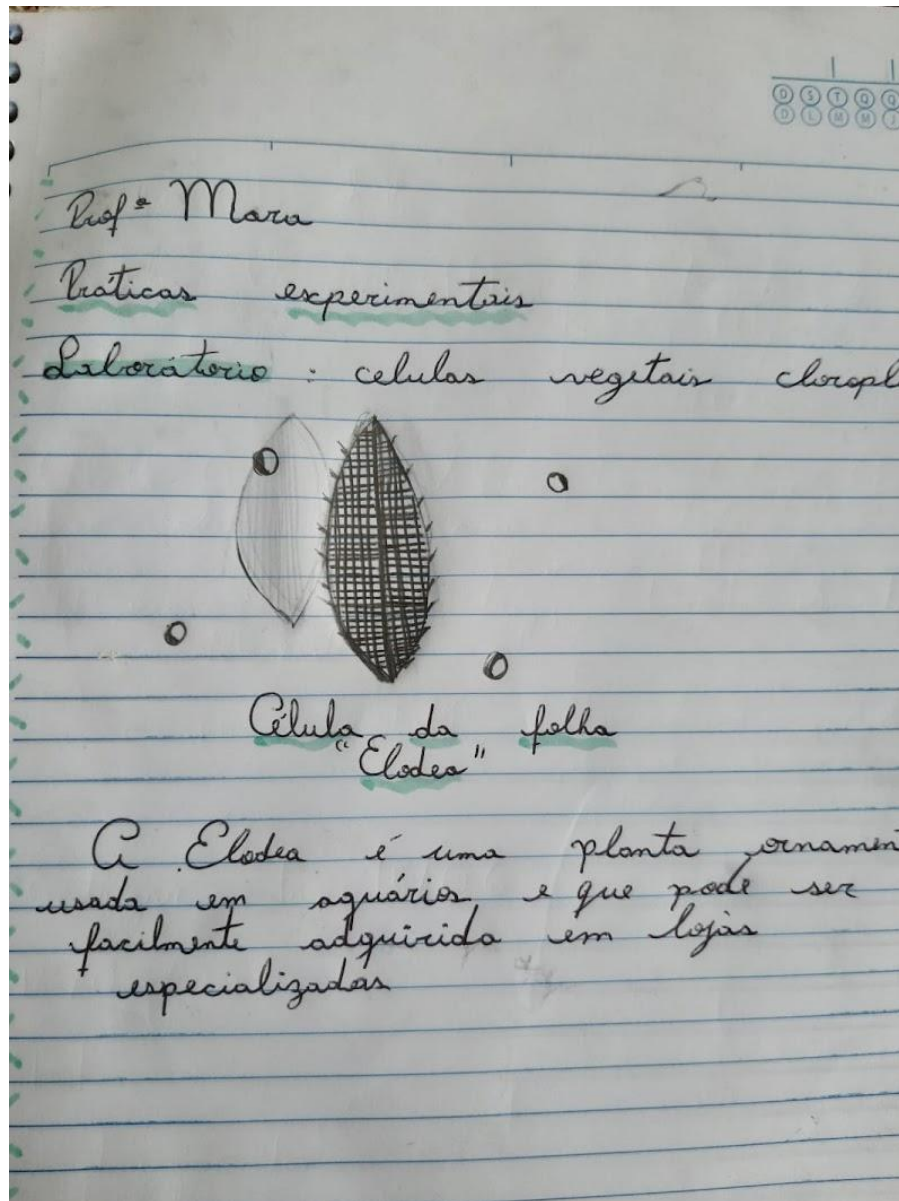 D S T Q Q
D L M M J
Profª Mara
Práticas experimentais
Laboratório : celulas vegetais cloropl
Célula da folha
"Elodea"
A Elodea é uma planta ornamen
usada em aquários e que pode ser
facilmente adquirida em lojas
especializadas